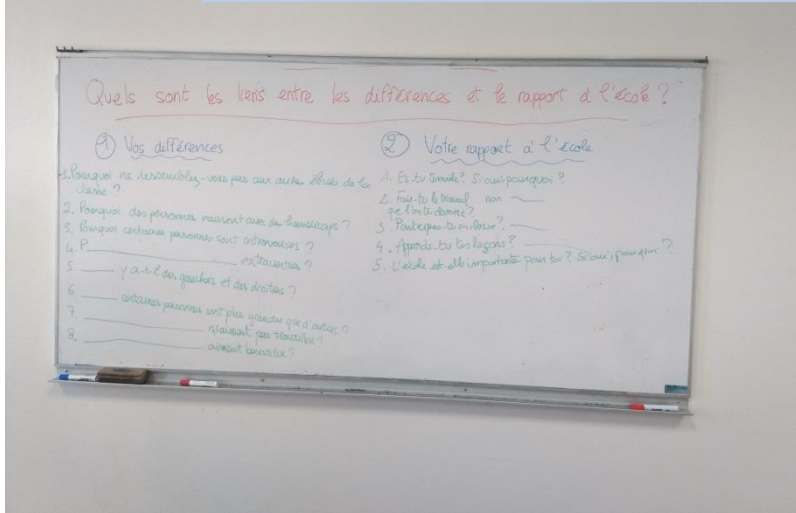 Quels sont les liens entre les différences et le rapport à l'école ?
① Vos différences
1. Pourquoi ne ressemblez-vous pas aux autres élèves de la
classe ?
2. Pourquoi des personnes naissent avec des handicaps ?
3. Pourquoi certaines personnes sont introverties ?
4. P____ extraverties ?
5. ____ y a-t-il des gauchers et des droitiers ?
6. ____ certaines personnes sont plus grandes que d'autres ?
7. ____ n'aiment pas travailler ?
8. ____ aiment ?
② Votre rapport à l'école
1. Es-tu timide ? Si oui, pourquoi ?
2. Fais-tu le travail non ____
que l'on te donne ?
3. Participes-tu en classe ? ____
4. Apprends-tu tes leçons ? ____
5. L'école est elle importante pour toi ? Si oui, pourquoi ?